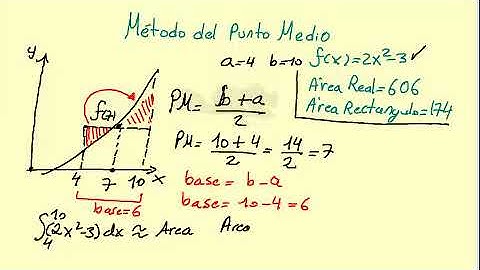 Método del Punto Medio
a=4 b=10 f(x)=2x²-3 ✓
Area Real=606
Area Rectangulo=174
y
f(7)
4 7 10 x
base=6
PM= b+a/2
PM= 10+4/2 = 14/2 = 7
base = b-a
base= 10-4=6
∫₄¹⁰(2x²-3)dx ≈ Area Area